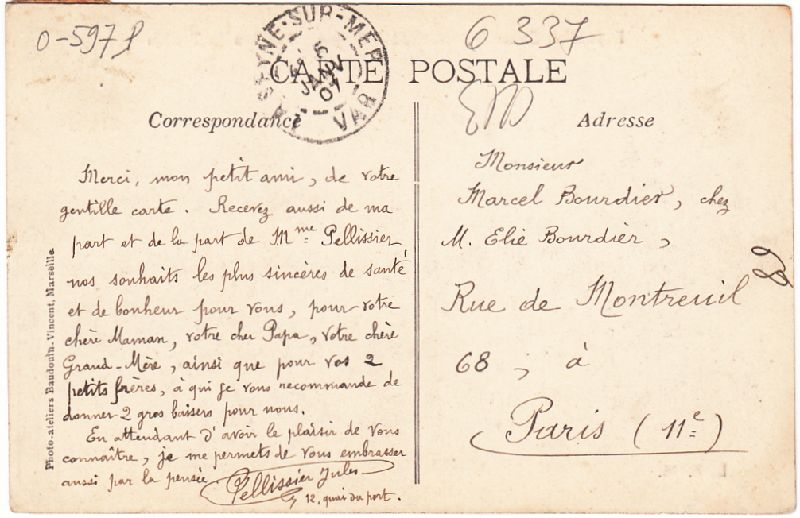 0-597
6 337
LA SEYNE-SUR-MER
5
JANV
07
VAR
CARTE POSTALE
Correspondance
Adresse
Merci, mon petit ami, de votre
gentille carte. Recevez aussi de ma
part et de la part de Mme Pellissier
nos souhaits les plus sincères de santé
et de bonheur pour vous, pour votre
chère Maman, votre cher Papa, votre chère
Grand-Mère, ainsi que pour vos 2
petits frères, à qui je vous recommande de
donner 2 gros baisers pour nous.
En attendant d'avoir le plaisir de vous
connaître, je me permets de vous embrasser
aussi par la pensée
Pellissier Jules
12, quai du port.
Monsieur
Marcel Bourdier, chez
M. Elie Bourdier,
Rue de Montreuil
68, à
Paris (11e)
Photo-ateliers Baudouin-Vincent, Marseille.